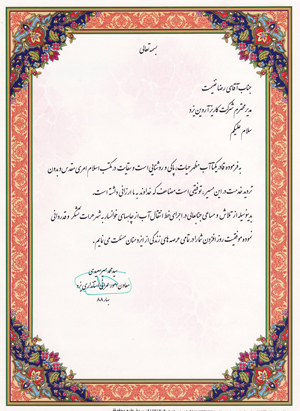 بسمه تعالی
جناب آقای رضا
مدیر محترم شرکت کاریز آروین یزد
سلام علیکم
به فرموده قادر یکتا آب مظهر حیات، پاکی و روشنایی است و سقایت در مکتب اسلام امری مقدس و بدون
تردید خدمت در این مسیر، توفیقی است مضاعف که خداوند به ما ارزانی داشته است.
بدینوسیله از تلاش و مساعی جنابعالی در اجرای خط انتقال آب از چاههای خوانسار به شهر هرات تشکر و قدردانی
نموده موفقیت روز افزون شما را در تمامی عرصه های زندگی از ایزد منان مسئلت می نمایم.
سید محمد
معاون امور عمرانی استانداری یزد
بهار ۸۸